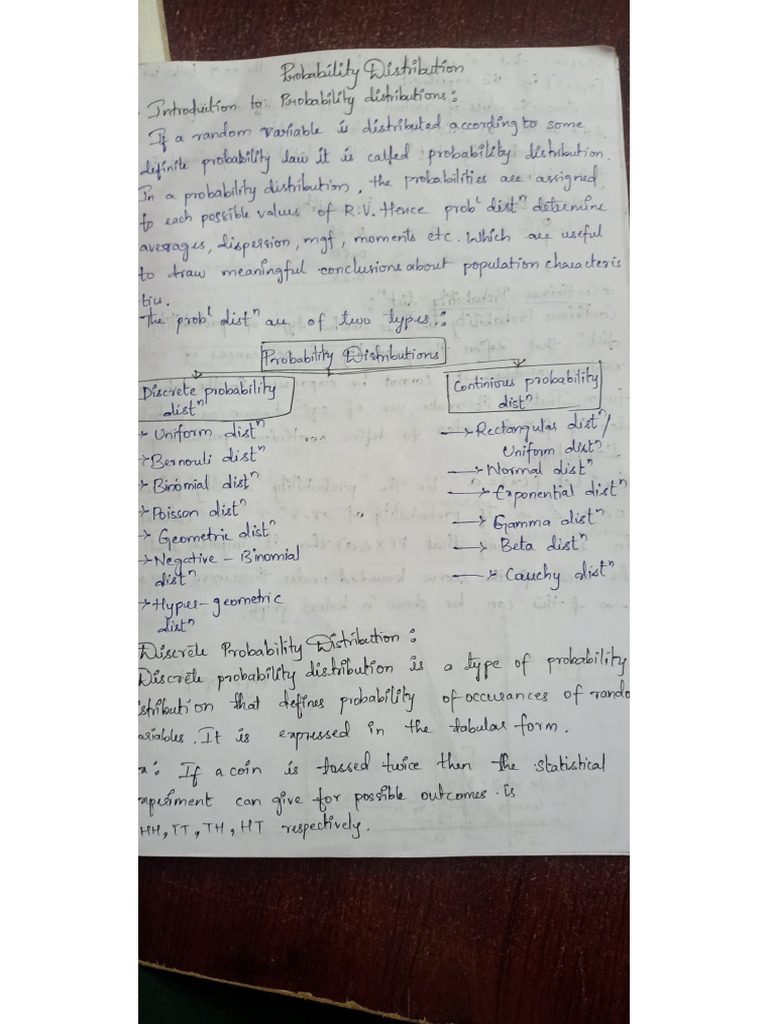 Probability Distribution
Introduction to Probability distributions:
If a random variable is distributed according to some
definite probability law it is called probability distribution.
In a probability distribution, the probabilities are assigned
to each possible values of R.V. Hence probˡ distⁿ determine
averages, dispersion, mgf, moments etc. Which are useful
to draw meaningful conclusions about population characteris
tic.
The probˡ distⁿ are of two types:
Probability Distributions
Discrete probability
distⁿ
→ Uniform distⁿ
→ Bernouli distⁿ
→ Binomial distⁿ
→ Poisson distⁿ
→ Geometric distⁿ
→ Negative - Binomial
distⁿ
→ Hyper-geometric
distⁿ
Continious probability
distⁿ
→ Rectangular distⁿ/
Uniform distⁿ
→ Normal distⁿ
→ Exponential distⁿ
→ Gamma distⁿ
→ Beta distⁿ
→ Cauchy distⁿ
Discrete Probability Distribution:
Discrete probability distribution is a type of probability
istribution that defines probability of occurances of rando
ariables. It is expressed in the tabular form.
x: If a coin is tossed twice then the statistical
xperiment can give for possible outcomes is
HH, TT, TH, HT respectively.